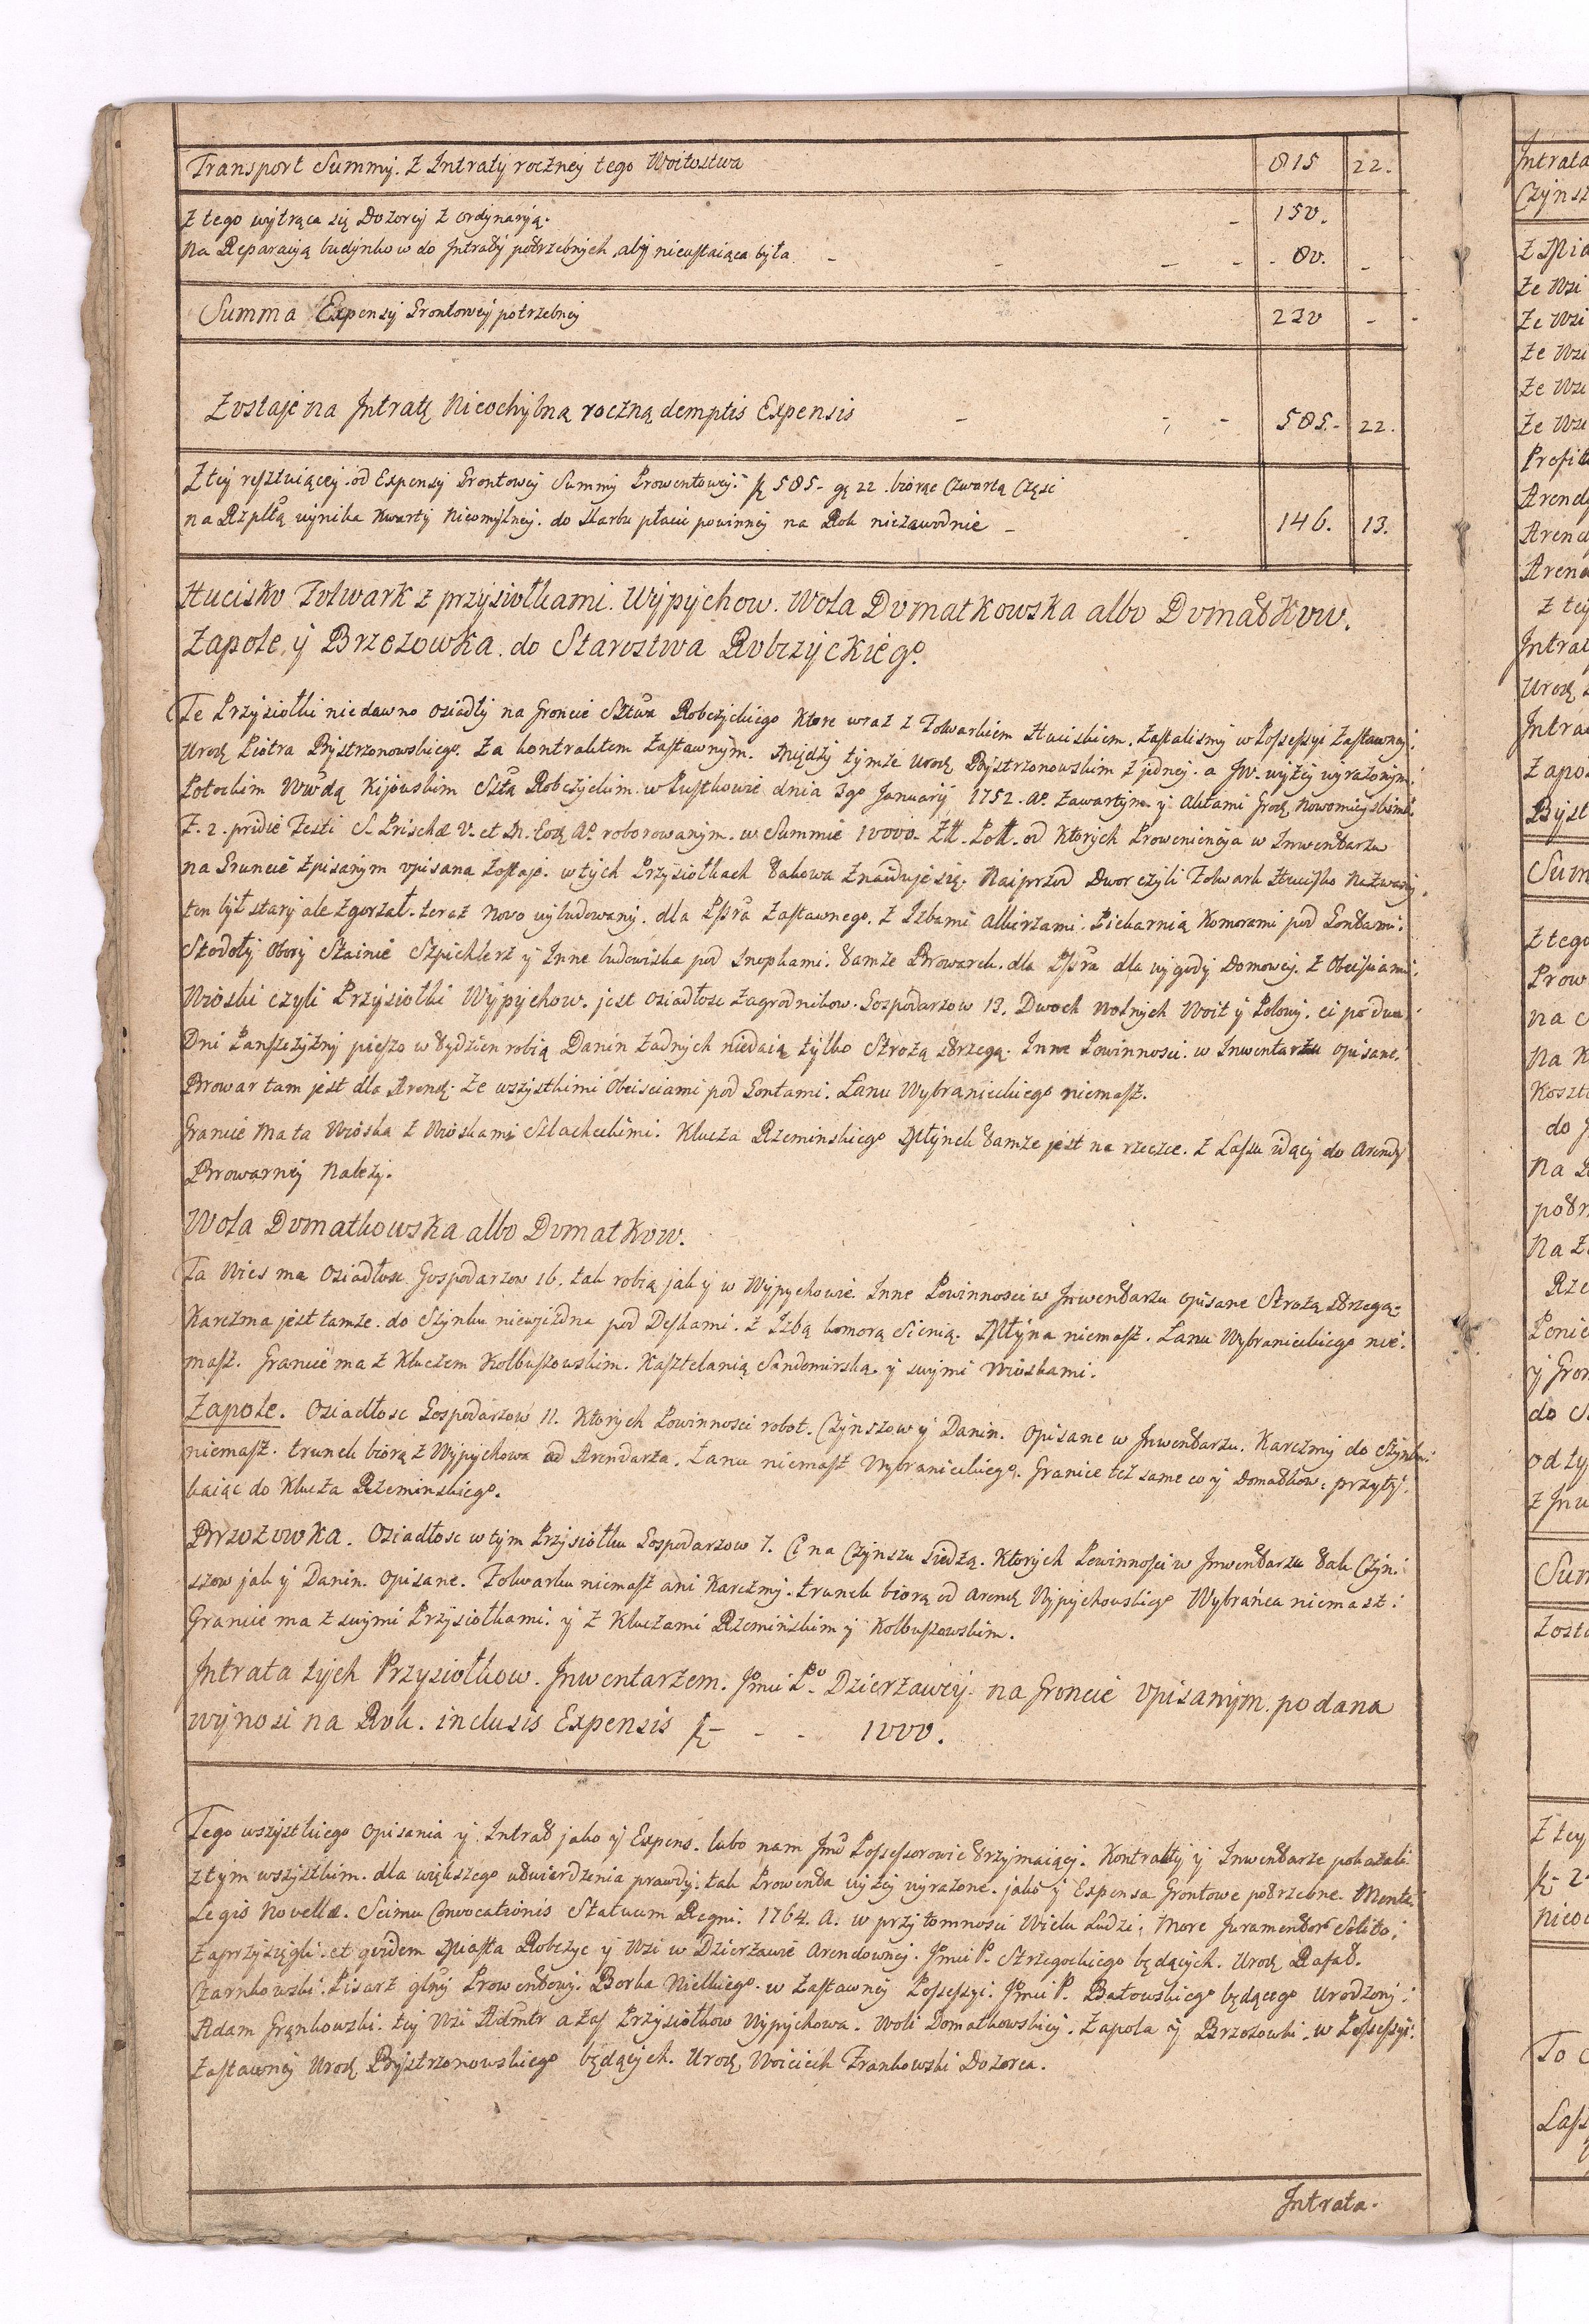 Transport Summy. z Intraty roczney tego Woitostwa 815 22.
z tego wytrąca się Dozorcy z ordynaryą. - 150.
na Reparacyą budynkow do Intraty potrzebnych, aby nieustaiąca była - - - - 80. -
Summa Expensy Grontowey potrzebney 230 - -
Zostaje na Intratę Nieochybną roczną demptis Expensis - - - 585.- 22.
Z tey resztuiącey od Expensy Grontowey Summy Prowentowey. 585- gr 22. biorąc czwartą częsc
na Rzpltą wynika Kwarty Nieomylney. do Skarbu płacic powinney na Rok niezawodnie - 146. 13.
Hucisko Folwark z przysiołkami. Wypychow. Wola Domatkowska albo Domatkow.
Zapole, y Brzozowka. do Starostwa Robczyckiego.
Te Przysiołki niedawno osiadły na Groncie Sttwa Robczyckiego Ktore wraz z Folwarkiem Huciskiem. Zastalismy w Possessyi Zastawney:
Urodz Piotra Bystrzonowskiego. za kontraktem Zastawnym. Między tymże Urodz Bystrzonowskim z jedney. a JW. wyżey wyrażonym.
Potockim Wwdą Kijowskim Sttą Robczyckim w Pustkowie dnia 3go January 1752. Ao. zawartym. y Aktami Grodz Nowomieyskimi.
F. 2. pridie Festi S. Priscæ V. et M. Eod Ao. roborowanym. w Summie 10000. Zlt. Polt. od Ktorych Proweniencya w Inwentarzu
na Gruncie spisanym opisana Zostaje. w tych Przysiołkach takowa Znaiduje się. Naiprzod Dwor czyli Folwark Hucisko Nazwany.
ten był stary ale zgorzał. teraz Novo wybudowany. dla Pssra Zastawnego. z Izbami Alkierzami. Piekarnią Komorami pod Gontami.
Stodoły Obory Stainie Szpichlerz y Inne budowiska pod Snopkami. tamze Browarek. dla Pssra dla wygody Domowey. z Obeisciami.
Wioski czyli Przysiołki Wypychow. jest osiadłosc Zagrodnikow. Gospodarzow 13. Dwoch Wolnych Woit y Polowy. ci po dwa
Dni Panszczyzny pieszo w tydzien robią Danin Zadnych niedaią tylko Strożą strzegą. Inne Powinnosci. w Inwentarzu opisane.
Browar tam jest dla Arendz. ze wszystkimi Obeisciami pod Gontami. Łanu Wybranieckiego niemasz.
Granice Ma ta Wioska z Wioskami Szlacheckimi. Klucza Rzeminskiego Młynek tamze jest na rzeczce. z Lassu idącey do Arendy
Browarney Należy.
Wola Domatkowska albo Domatkow.
Ta Wies ma Osiadłosc Gospodarzow 16. tak robią jak y w Wypychowie. Inne Powinnosci w Inwentarzu opisane Strożą strzegą:
Karczma jest tamze. do Szynku niewjezdna pod Deskami. z Izbą komorą Sienią. Młyna niemasz. Lanu Wybranieckiego nie.
masz. Granice ma z Kluczem Kolbuszowskim. Kasztelanią Sandomirską. y swymi Wioskami.
Zapole. Osiadłosc Gospodarzow 11. Ktorych Powinnosci robot. Czynszow y Danin. opisane w Inwentarzu. Karczmy do Szynku
niemasz. trunek biorą z Wypychowa od Arendarza. Lanu niemasz Wybranieckiego. Granice też same co y Domatkow. przyty.
kaiąc do Klucza Rzeminskiego.
Brzozowka. Osiadłosc w tym Przysiołku Gospodarzow 7. Ci na Czynszu siedzą. Ktorych Powinnosci w Inwentarzu tak Czyn:
szow jak y Danin. opisane. Folwarku niemasz ani Karczmy. trunek biorą od Arendz Wypychowskiego Wybrańca niemasz:
Granice ma z swymi Przysiołkami. y z Kluczami Rzemińskim y Kolbuszowskim.
Intrata tych Przysiołkow. Inwentarzem. Jmci Po. Dzierzawcy. na Groncie opisanym. podana
wynosi na Rok. inclusis Expensis - - - 1000.
Tego wszystkiego opisania y Intrat jako y Expens. lubo nam Possessorowie trzymaiący. Kontrakty y Inwentarze pokazali
z tym wszystkim. dla większego utwierdzenia prawdy. tak Prowenta wyżey wyrażone. jako y Expensa Grontowe potrzebne. Mente
Legis Novellæ. Seimu Convocationis Statuum Regni. 1764. A. w przytomnosci Wielu Ludzi, More Juramentor Solito:
Zaprzysięgli. et quidem Miasta Robczyc y Wsi w Dzierzawie Arendowney. Jmci P. Strzegockiego będących. Urodz Rafał.
Czarnkowski. Pisarz glny Prowentowy. Borka Wielkiego. w Zastawney Possessyi. Jmci P. Bałowskiego będącego Urodzony:
Adam Grąnkowski. tey Wsi Admtr a zas Przysiołkow Wypychowa. Woli Domatkowskiey. Zapola y Brzozowki. w Possessyi.
Zastawney Urodz Bystrzonowskiego będących. Urodz Woiciech Frankowski Dozorca.
Intrata.